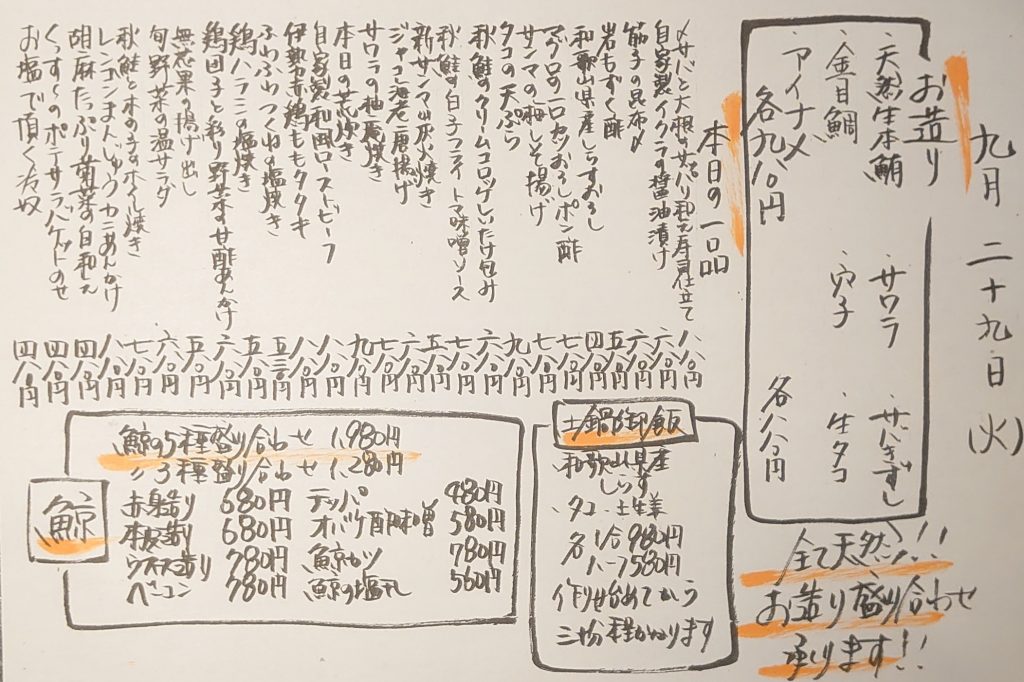 九月二十九日(火)
お造り
天然生本鮪 サワラ サバきずし
金目鯛 穴子 生タコ
アイナメ
各九八〇円 各八八〇円
全て天然!!!
お造り盛り合わせ
承ります!!
本日の一品
〆サバと大根のサッパリ和え寿司仕立て 八八〇円
自家製イクラの醤油漬け 六八〇円
筋子の昆布〆 六八〇円
岩もずく酢 五八〇円
和歌山県産しらすおろし 四八〇円
マグロの一口カツおろしポン酢 七八〇円
サンマの梅しそ揚げ 七八〇円
タコの天ぷら 九八〇円
秋鮭のクリームコロッケしいたけ包み 六八〇円
秋鮭の白子フライトマト味噌ソース 七八〇円
新サンマ炭火焼き 五八〇円
ジャコ海老唐揚げ 六八〇円
サワラの柚庵焼き 七八〇円
本日の荒炊き 九八〇円
自家製和田ローストビーフ 八八〇円
伊勢赤鶏ももタタキ 八八〇円
ふわふわつくねの塩焼き 五五〇円
鶏ハラミの塩焼き 五八〇円
鶏団子と彩り野菜の甘酢あんかけ 六八〇円
無志果の揚げ出し 五八〇円
旬野菜の温サラダ 六八〇円
秋鮭と木の子のホイル焼き 七八〇円
レンコンまんじゅうカニあんかけ 八八〇円
胡麻たっぷり菊菜の白和え 四八〇円
くっす〜のポテサラバゲットのせ 四八〇円
お塩で頂く冷奴 四八〇円
土鍋御飯
和歌山県産
しらす
タコ 土生姜
各1合980円
ハーフ580円
作り始めてから
三十分程かかります
鯨
鯨の5種盛り合わせ 1,980円
〃3種盛り合わせ 1,280円
赤身造り 680円 テッパ 480円
本皮造り 680円 オバケ酢味噌 580円
ウネス造り 780円 鯨モツ 780円
ベーコン 780円 鯨の塩 560円